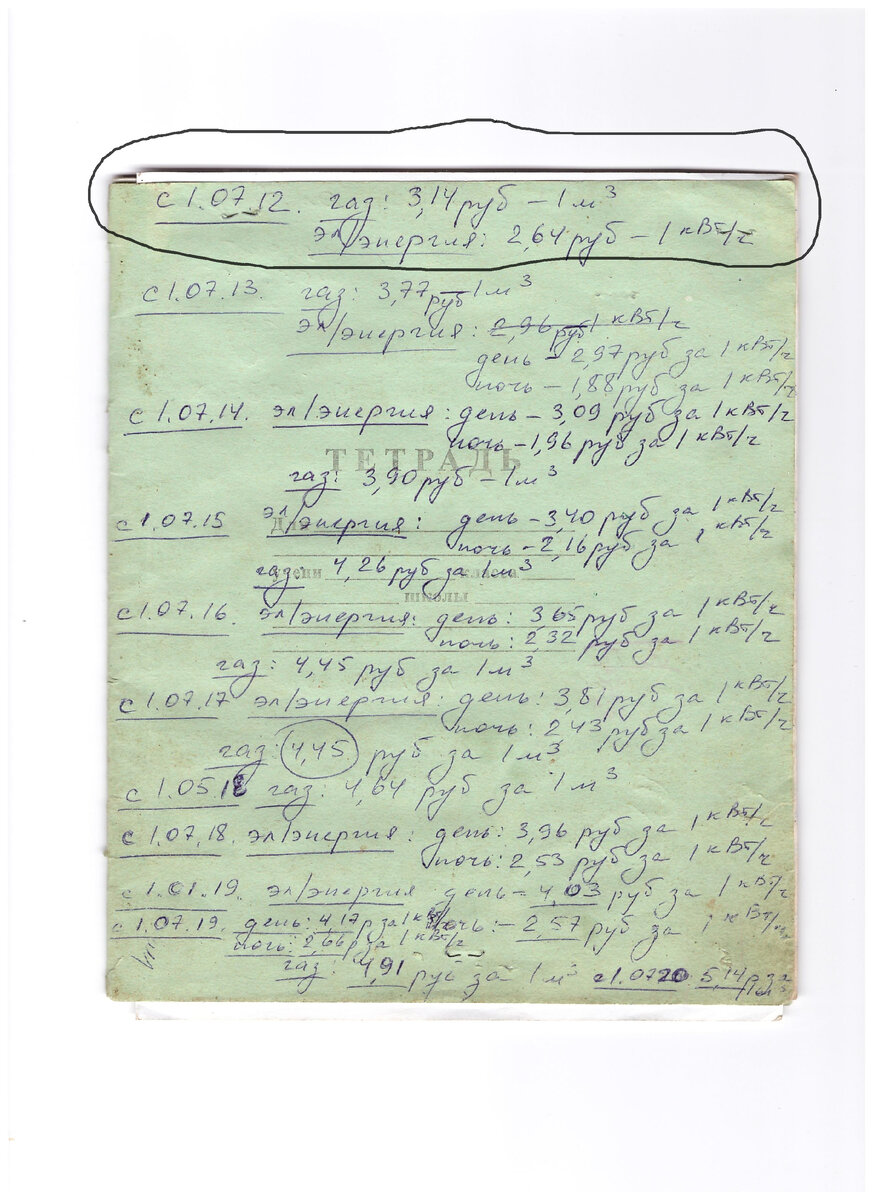 с 1.07.12. газ: 3,14 руб – 1 м³
эл/энергия: 2,64 руб – 1 кВт/ч
с 1.07.13. газ: 3,77 руб – 1 м³
эл/энергия: 2,96 руб 1 кВт/ч
день – 2,97 руб за 1 кВт/ч
ночь – 1,88 руб за 1 кВт/ч
с 1.07.14. эл/энергия: день – 3,09 руб за 1 кВт/ч
ночь – 1,96 руб за 1 кВт/ч
ТЕТРАДЬ
газ: 3,90 руб – 1 м³
с 1.07.15 эл/энергия: день – 3,40 руб за 1 кВт/ч
ночь – 2,16 руб за 1 кВт/ч
газ: 4,26 руб за 1 м³
школы
с 1.07.16. эл/энергия: день: 3,65 руб за 1 кВт/ч
ночь: 2,32 руб за 1 кВт/ч
газ: 4,45 руб за 1 м³
с 1.07.17 эл/энергия: день: 3,81 руб за 1 кВт/ч
ночь: 2,43 руб за 1 кВт/ч
газ: 4,45 руб за 1 м³
с 1.05.18 газ: 4,64 руб за 1 м³
с 1.07.18. эл/энергия: день: 3,96 руб за 1 кВт/ч
ночь: 2,53 руб за 1 кВт/ч
с 1.01.19. эл/энергия день – 4,03 руб за 1 кВт/ч
ночь: – 2,57 руб за 1 кВт/ч
с 1.07.19. день: 4,17 р за 1 кВт/ч
ночь: 2,66 р за 1 кВт/ч
газ: 4,91 руб за 1 м³ с 1.07.20 5,14 р за 1 м³